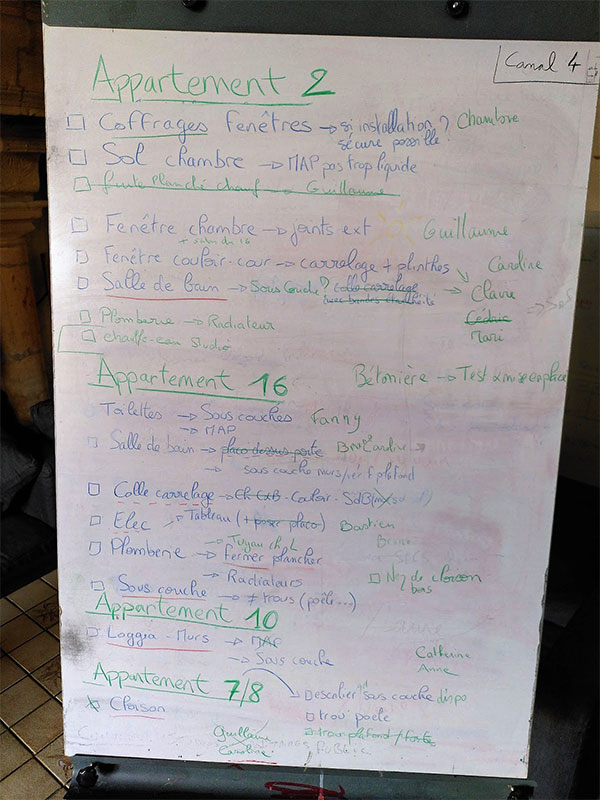 Canal 4
Appartement 2
Coffrages fenêtres → si installation ? Chambre
sécure possible ?
Sol chambre → MAP pas trop liquide
fuite planché chauf → Guillaume
Fenêtre chambre → joints ext Guillaume
Fenêtre couloir-cour → carrelage + plinthes Caroline
Salle de bain → Sous couche ? colle carrelage → Claire
avec bandes étanchéité
Cédric
Mari
Plomberie → Radiateur
chauffe-eau Studio
Appartement 16
Bétonière → Test & mise en place
Toilettes → Sous couches Fanny
→ MAP
Salle de bain → placo dessus porte
→ sous couche murs/ver plafond
Colle carrelage → Couloir - SdB
Elec → Tableau (+ poser placo) Bastien
Tuyau ch. L Bruno
Plomberie → Fermer plancher
→ Radiateurs
Niv de cloison
bas
Sous couche → ≠ trous (poêle...)
Appartement 10
Loggia - Murs → MAP
→ Sous couche
Catherine
Anne
Appartement 7/8
Descalier sous couche dispo
Cloison
trou poêle
trou plafond / porte
Guillaume
Caroline